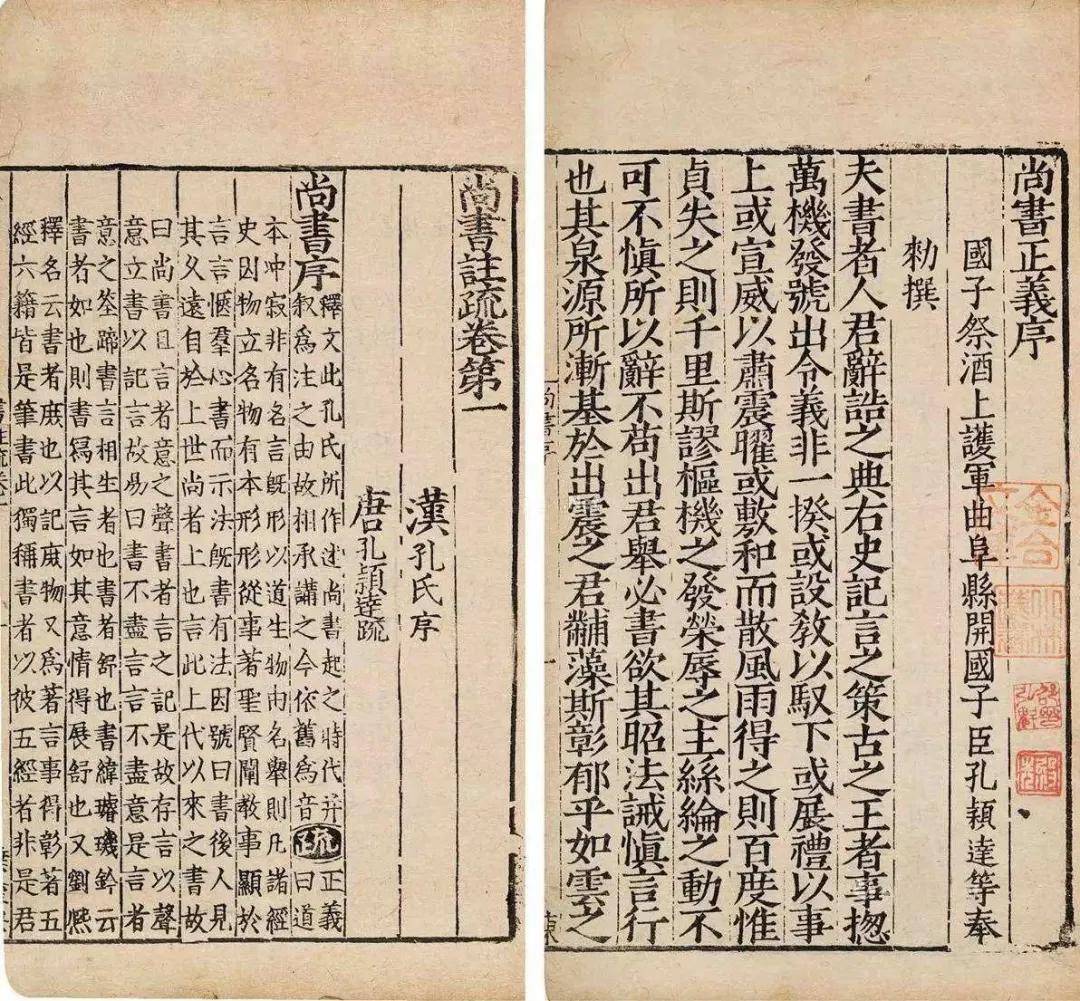 尚書正義序
國子祭酒上護軍曲阜縣開國子臣孔穎達等奉
勑撰
夫書者人君辭誥之典右史記言之策古之王者事揔
萬機發號出令義非一揆或設教以馭下或展禮以事
上或宣威以肅震曜或敷和而散風雨得之則百度惟
貞失之則千里斯謬樞機之發榮辱之主絲綸之動不
可不慎所以辭不苟出君舉必書欲其昭法誡慎言行
也其泉源所漸基於出震之君黼藻斯彰郁乎如雲之
尚書序
尚書註疏卷第一
漢孔氏序
唐孔穎達疏
尚書序
釋文此孔氏所作述尚書起之時代并
叙爲注之由故相承講之今依舊爲音
疏
正義
曰道
本冲寂非有名言旣形以道生物由名舉則凡諸經
史因物立名物有本形形從事著聖賢闡教事顯於
言言愜羣心書而示法旣書有法因號曰書後人見
其久遠自於上世尚者上也言此上代以來之書故
曰尚書且言者意之聲書者言之記是故存言以聲
意立書以記言故易曰書不盡言言不盡意是言者
意之筌蹄書言相生者也書者舒也書緯璿璣鈐云
書者如也則書寫其言如其意情得展舒也又劉熈
釋名云書者庶也以記庶物又爲著言事得彰著五
經六籍皆是筆書此獨稱書者以彼五經者非是君